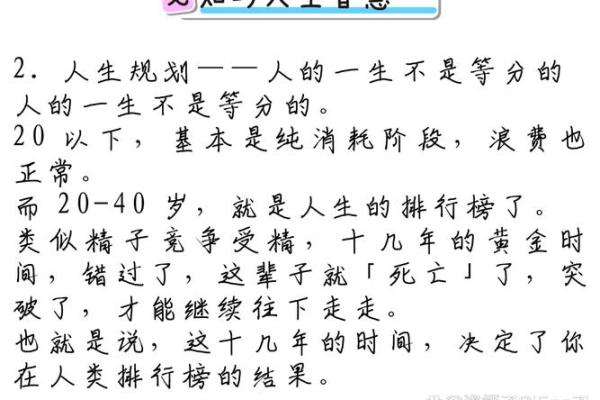 2. 人生规划——人的一生不是等分的
人的一生不是等分的。
20 以下，基本是纯消耗阶段，浪费也
正常。
而 20-40 岁，就是人生的排行榜了。
类似精子竞争受精，十几年的黄金时
间，错过了，这辈子就「死亡」了，突
破了，才能继续往下走走。
也就是说，这十几年的时间，决定了你
在人类排行榜的结果。